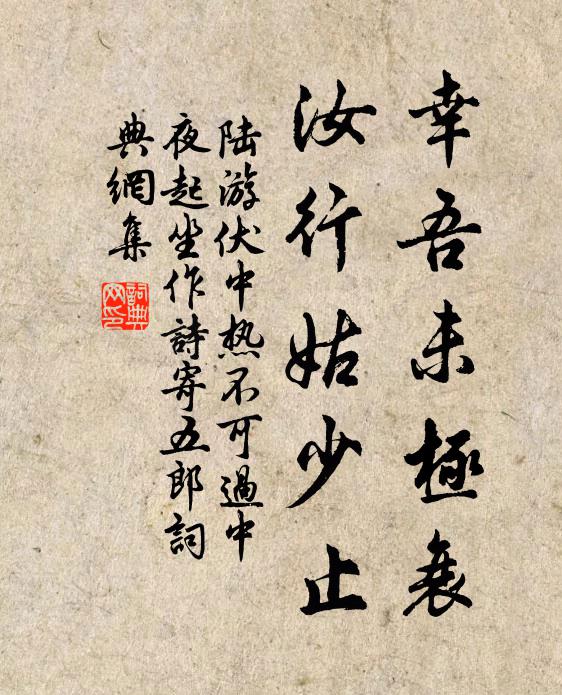 幸吾未極衰
汝行姑少止
陆游伏中热不可過中
夜起坐作詩寄五郎詞
典網集
詞典
网印